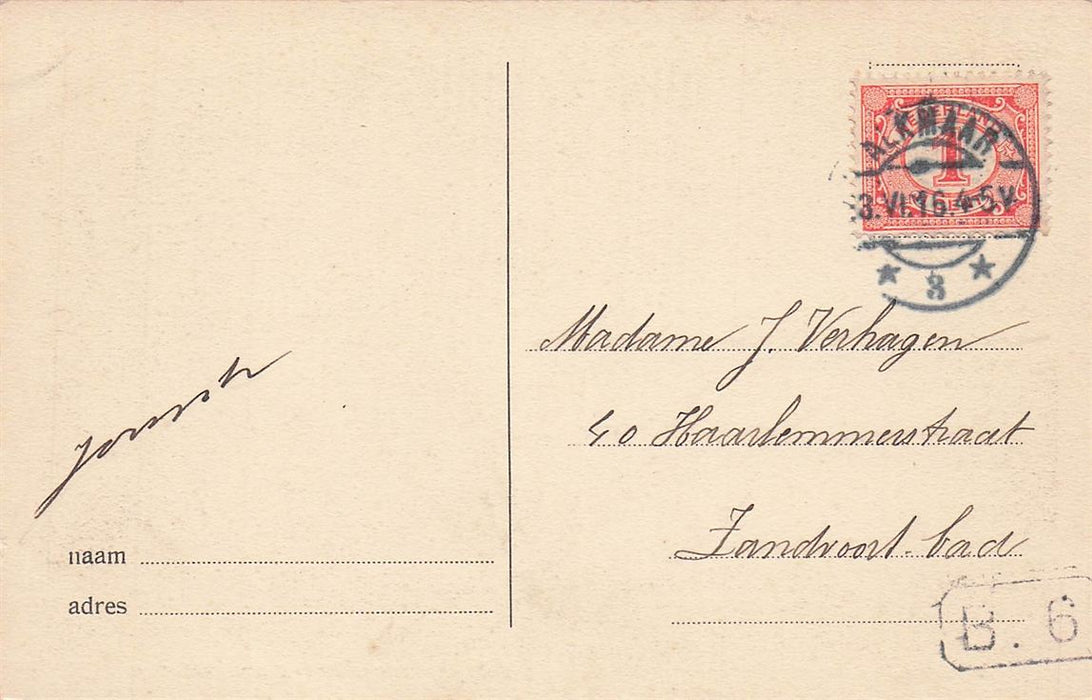 NEDERLAND
1
CENT
ALKMAAR
3.VI.16.4-5V
3
Madame J. Verhagen
40 Haarlemmerstraat
Zandvoort-bad
naam
adres
B. 6